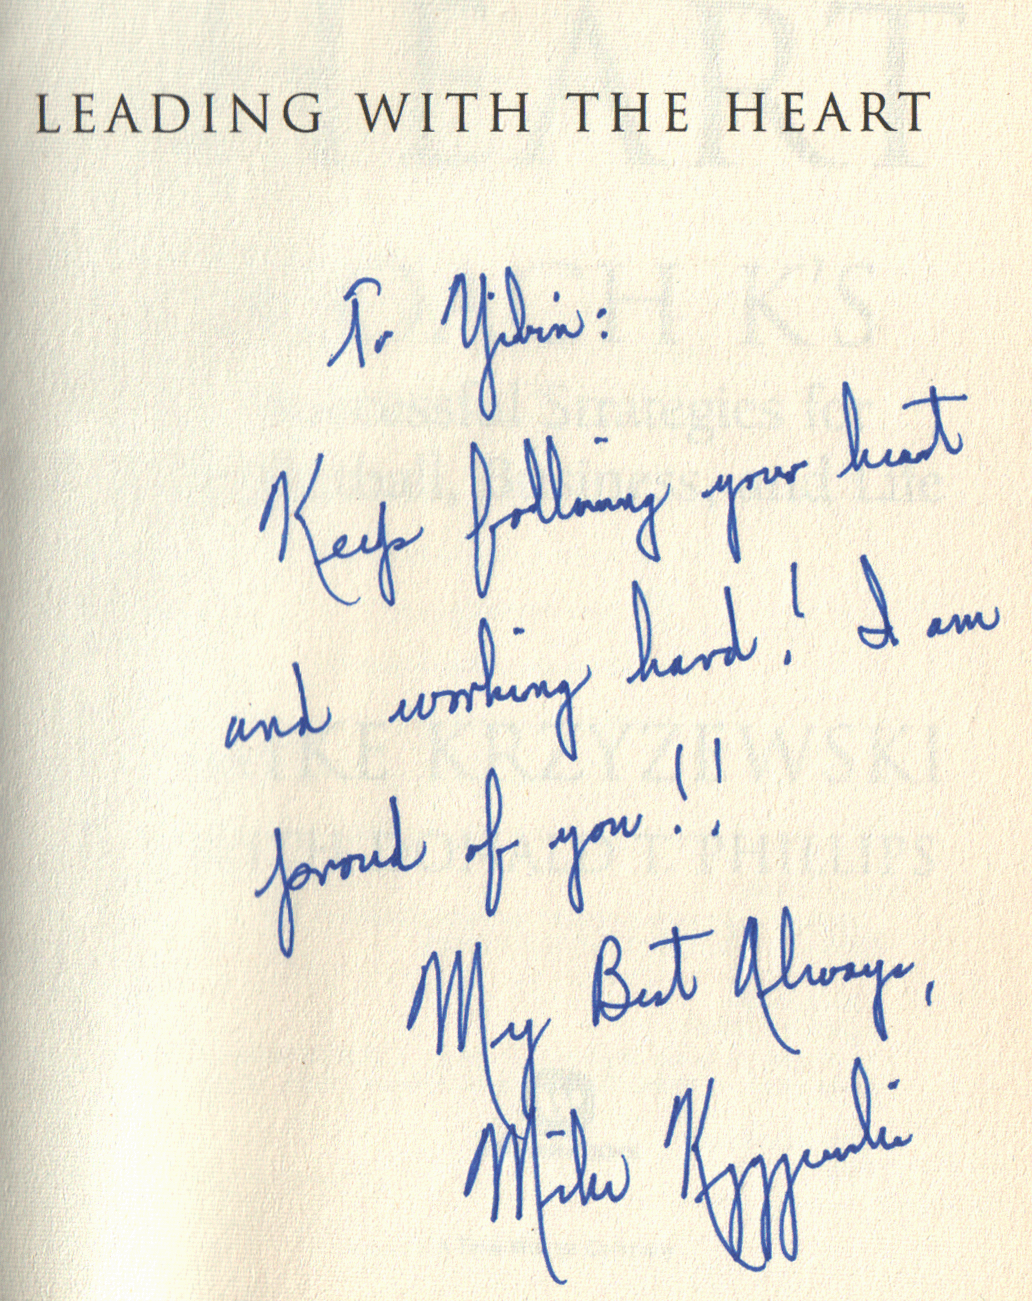 LEADING WITH THE HEART
To Yibin:
Keep following your heart
and working hard! I am
proud of you!!
My Best Always,
Mike Krzyzewski